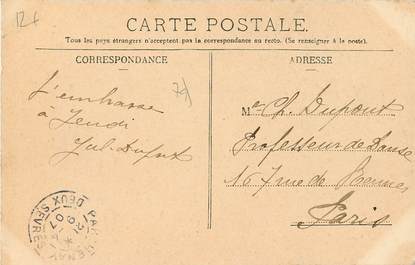 12f
CARTE POSTALE.
Tous les pays étrangers n'acceptent pas la correspondance au recto. (Se renseigner à la poste).
CORRESPONDANCE
ADRESSE
7d)
J'embrasse
à Jeudi
Jul. Dupont
M. Ch. Dupont
Professeur de Danse
167 rue de Rennes
Paris
DEUX SÈVRES
07